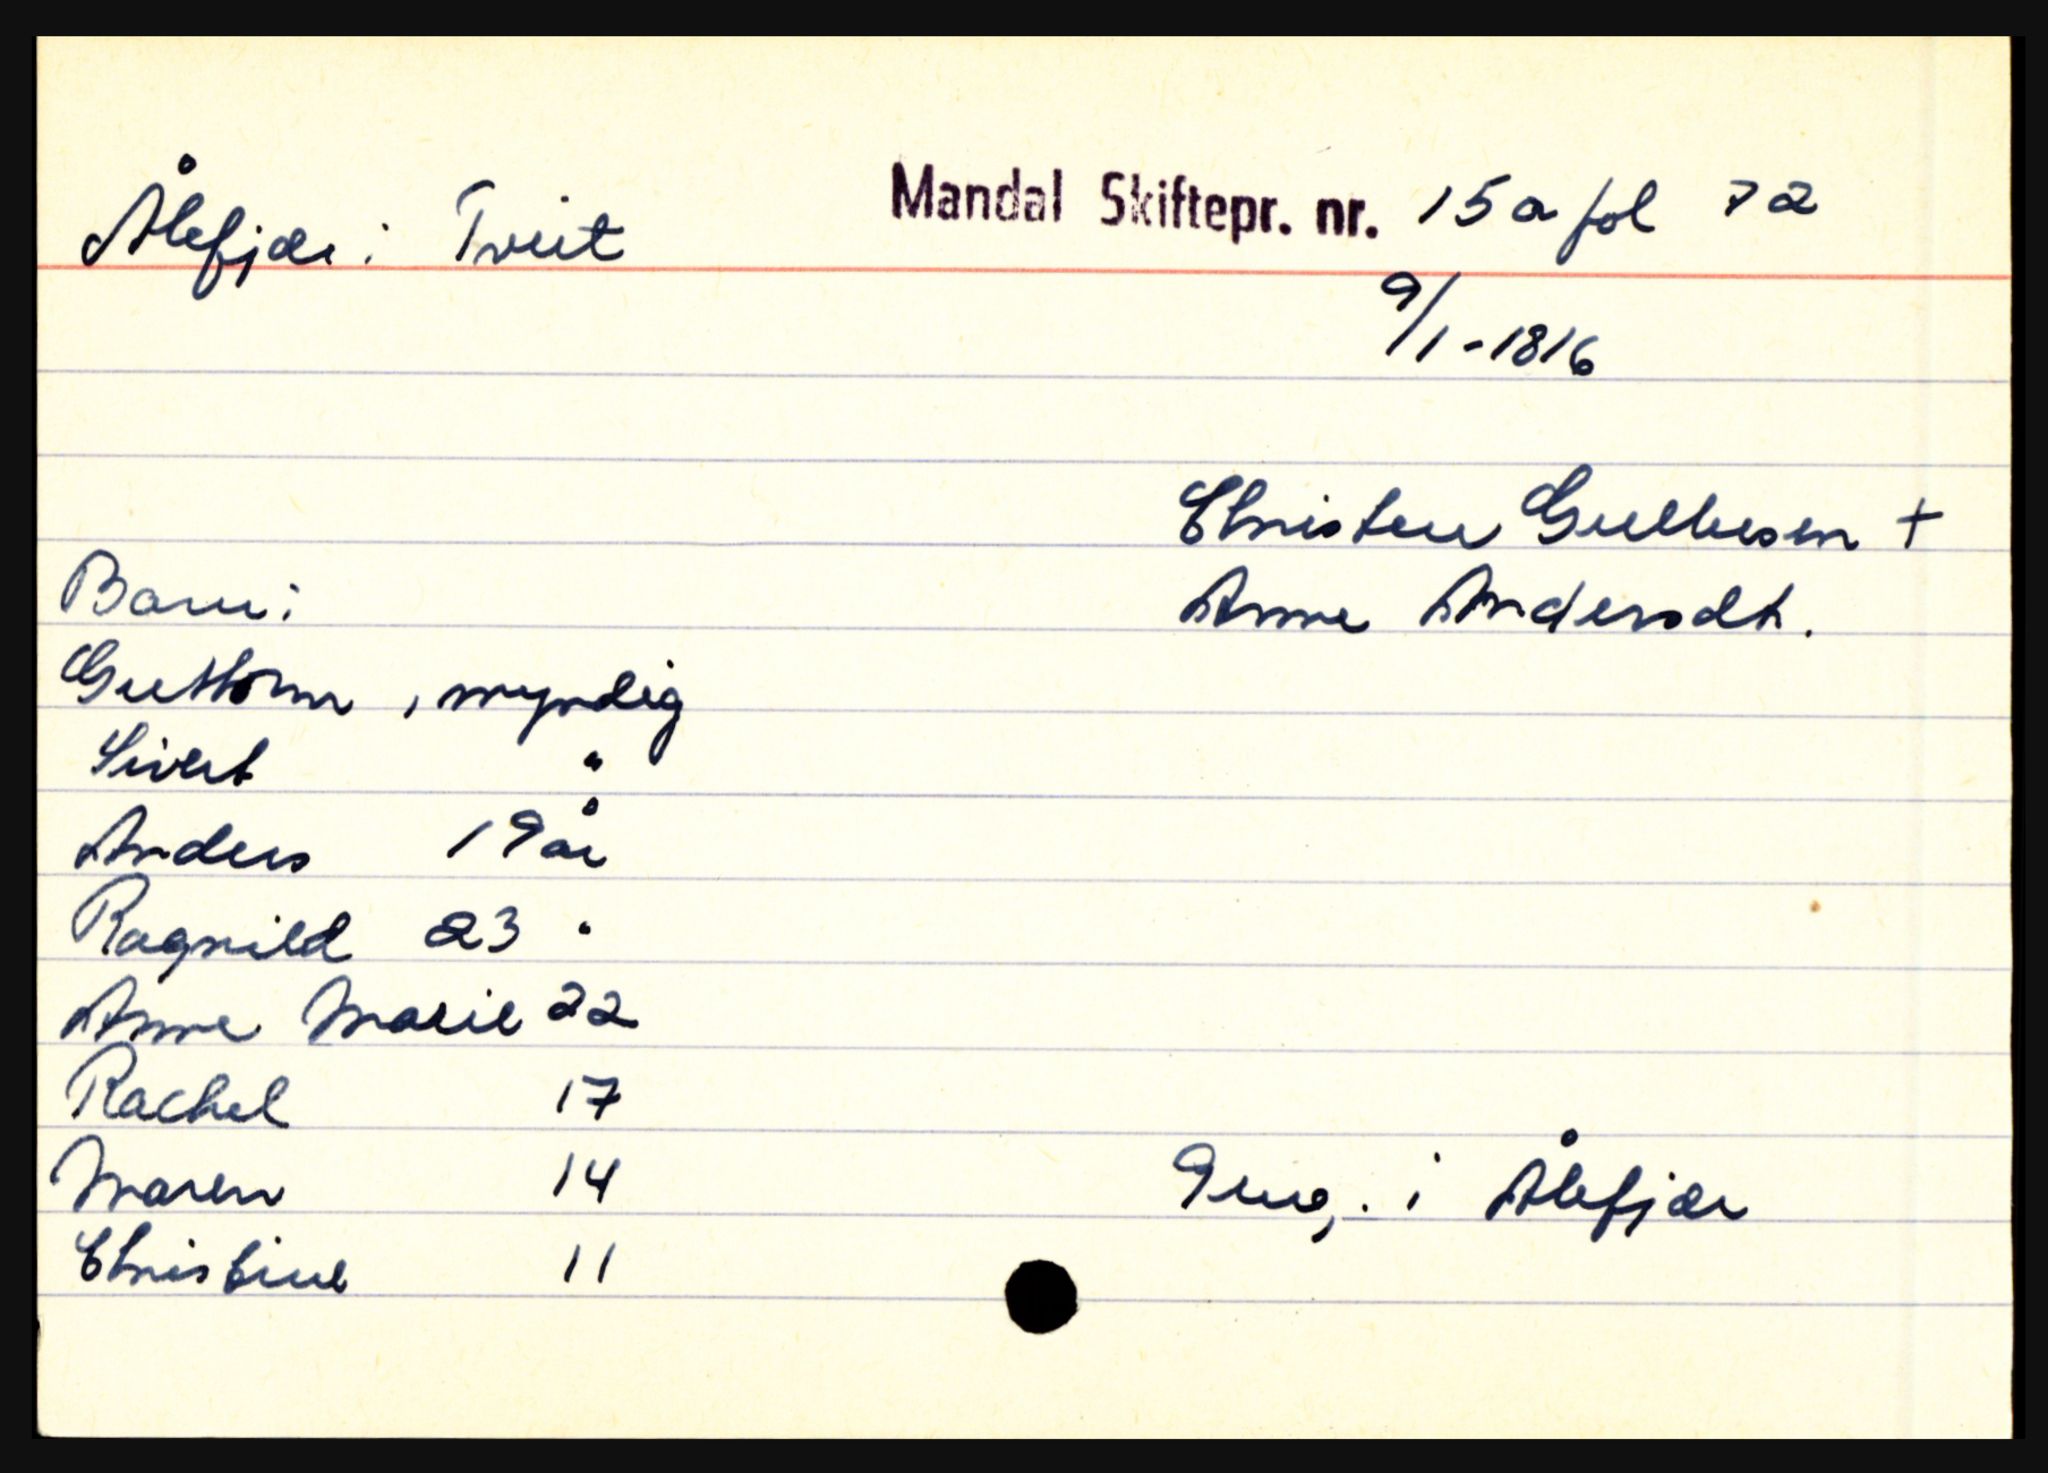 Ålefjær i Tveit Mandal Skiftepr. nr. 15a fol 72
9/1-1816
Christen Gullesen +
Barn: Anne Andersdt.
Guttorm, myndig
Sivert "
Anders 19 år
Ragnild 23 "
Anne Marie 22
Rachel 17
Maren 14 i Ålefjær
Christine 11